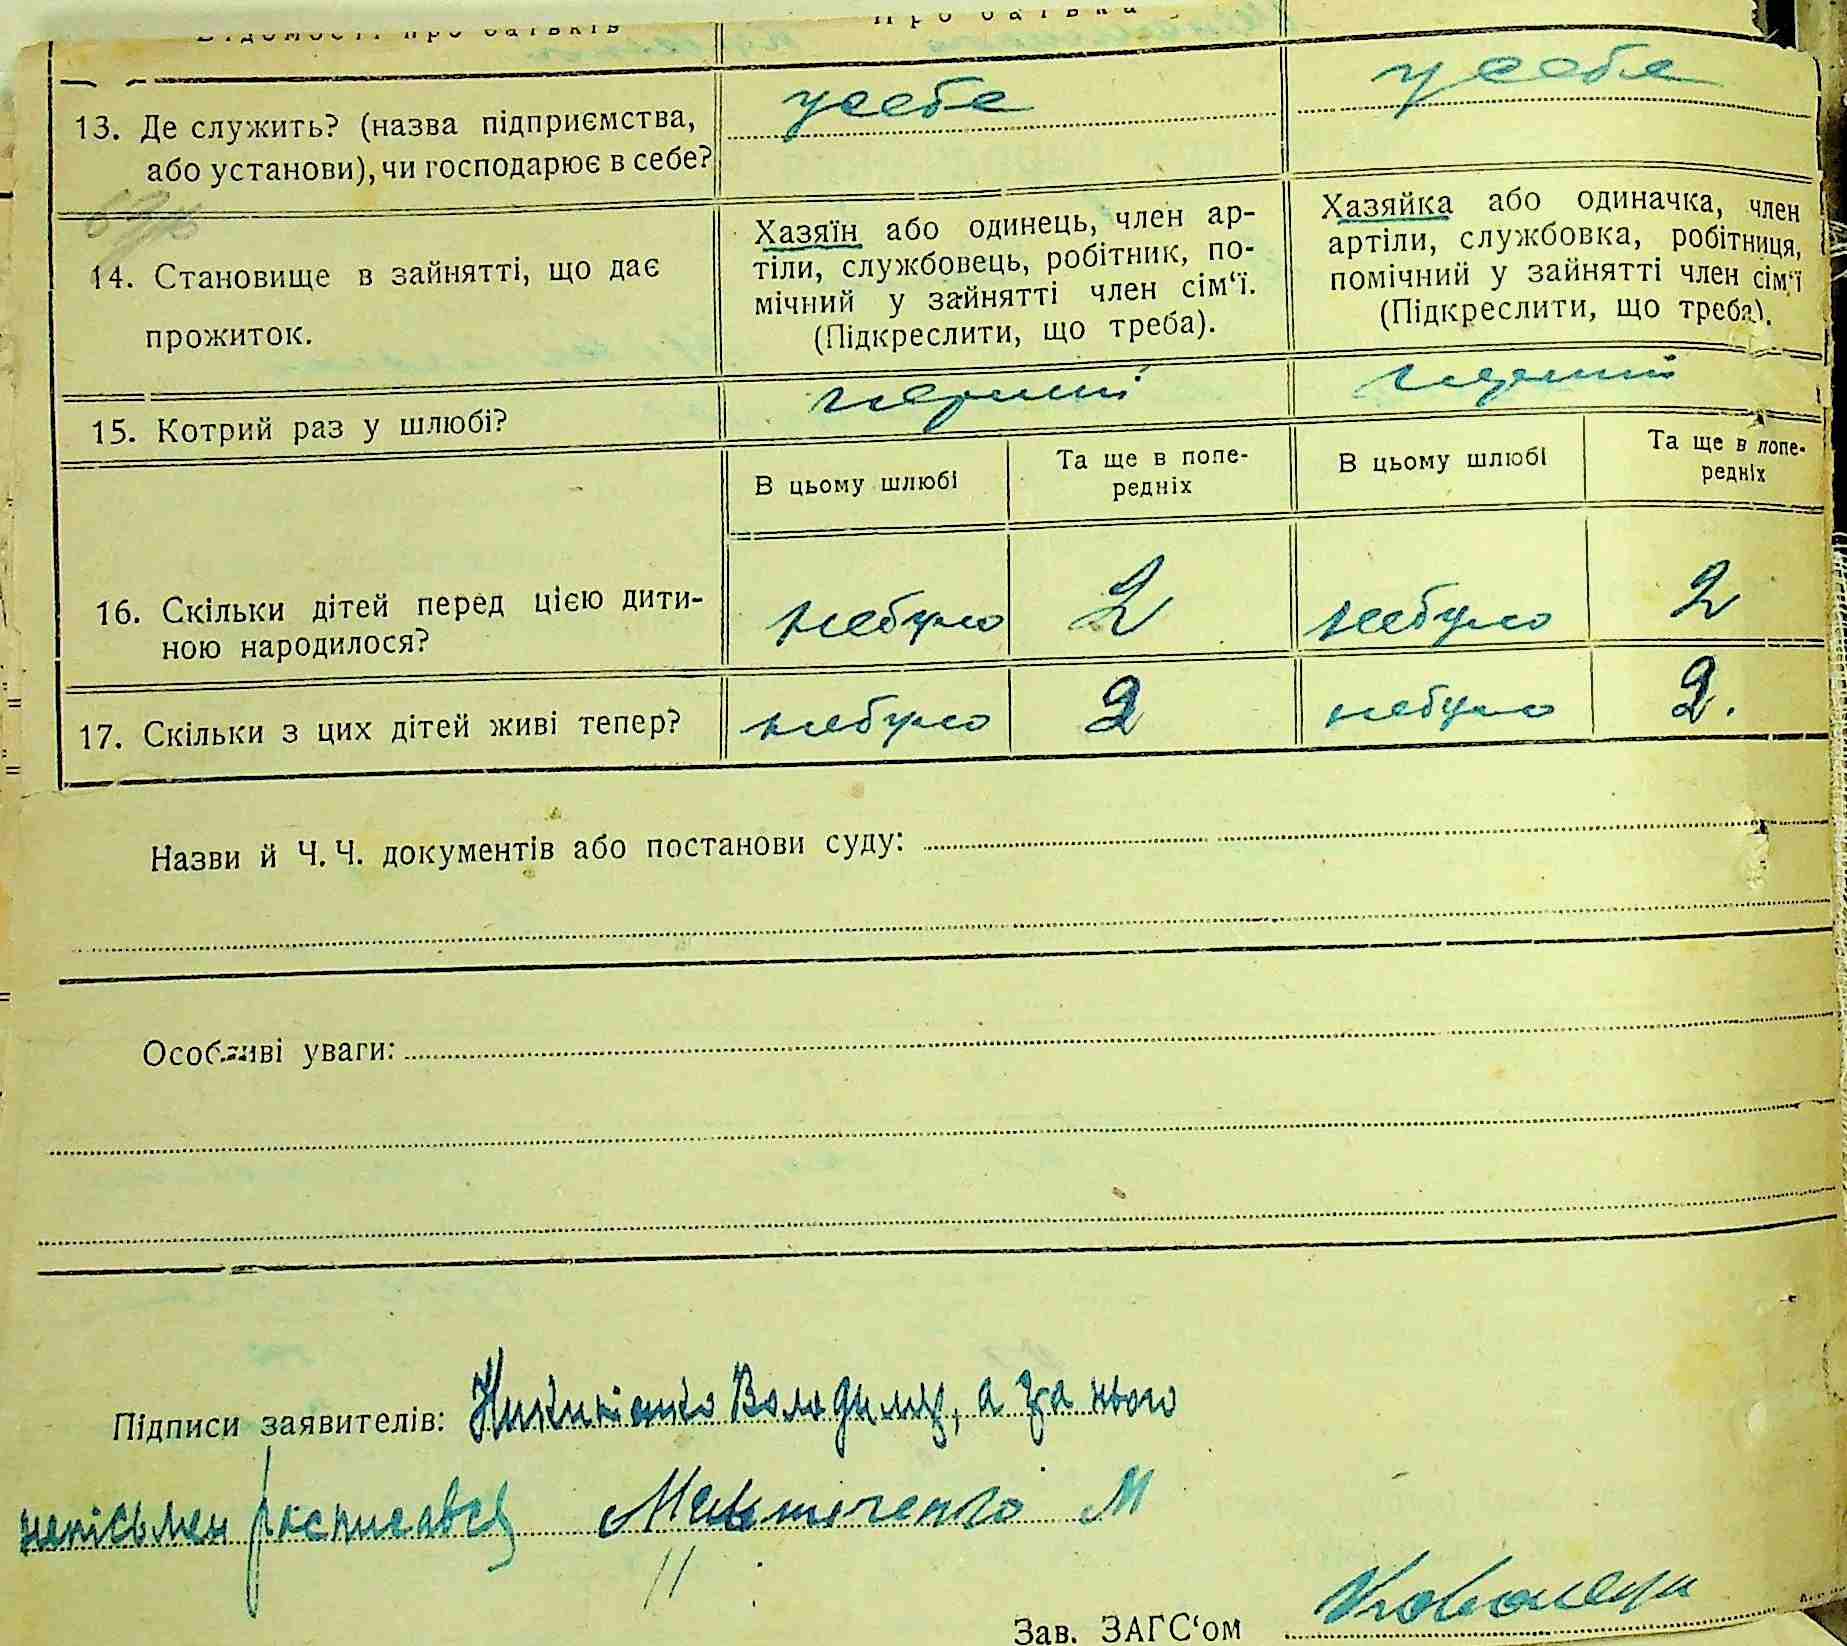 Відомості про батьків Про батька
13. Де служить? (назва підприємства, усебе усебе
або установи), чи господарює в себе?
14. Становище в зайнятті, що дає
прожиток.
Хазяїн або одинець, член ар-
тіли, службовець, робітник, по-
мічний у зайнятті член сім‘ї.
(Підкреслити, що треба).
Хазяйка або одиначка, член
артіли, службовка, робітниця,
помічний у зайнятті член сім‘ї
(Підкреслити, що треба).
15. Котрий раз у шлюбі? перший перший
В цьому шлюбі
Та ще в попе-
редніх
В цьому шлюбі
Та ще в попе-
редніх
16. Скільки дітей перед цією дити-
ною народилося?
небуло 2 небуло 2
17. Скільки з цих дітей живі тепер? небуло 2 небуло 2.
Назви й Ч. Ч. документів або постанови суду:
Особливі уваги:
Підписи заявителів: Володимир, а за нього
непісьмен росписавсь М
Зав. ЗАГС‘ом